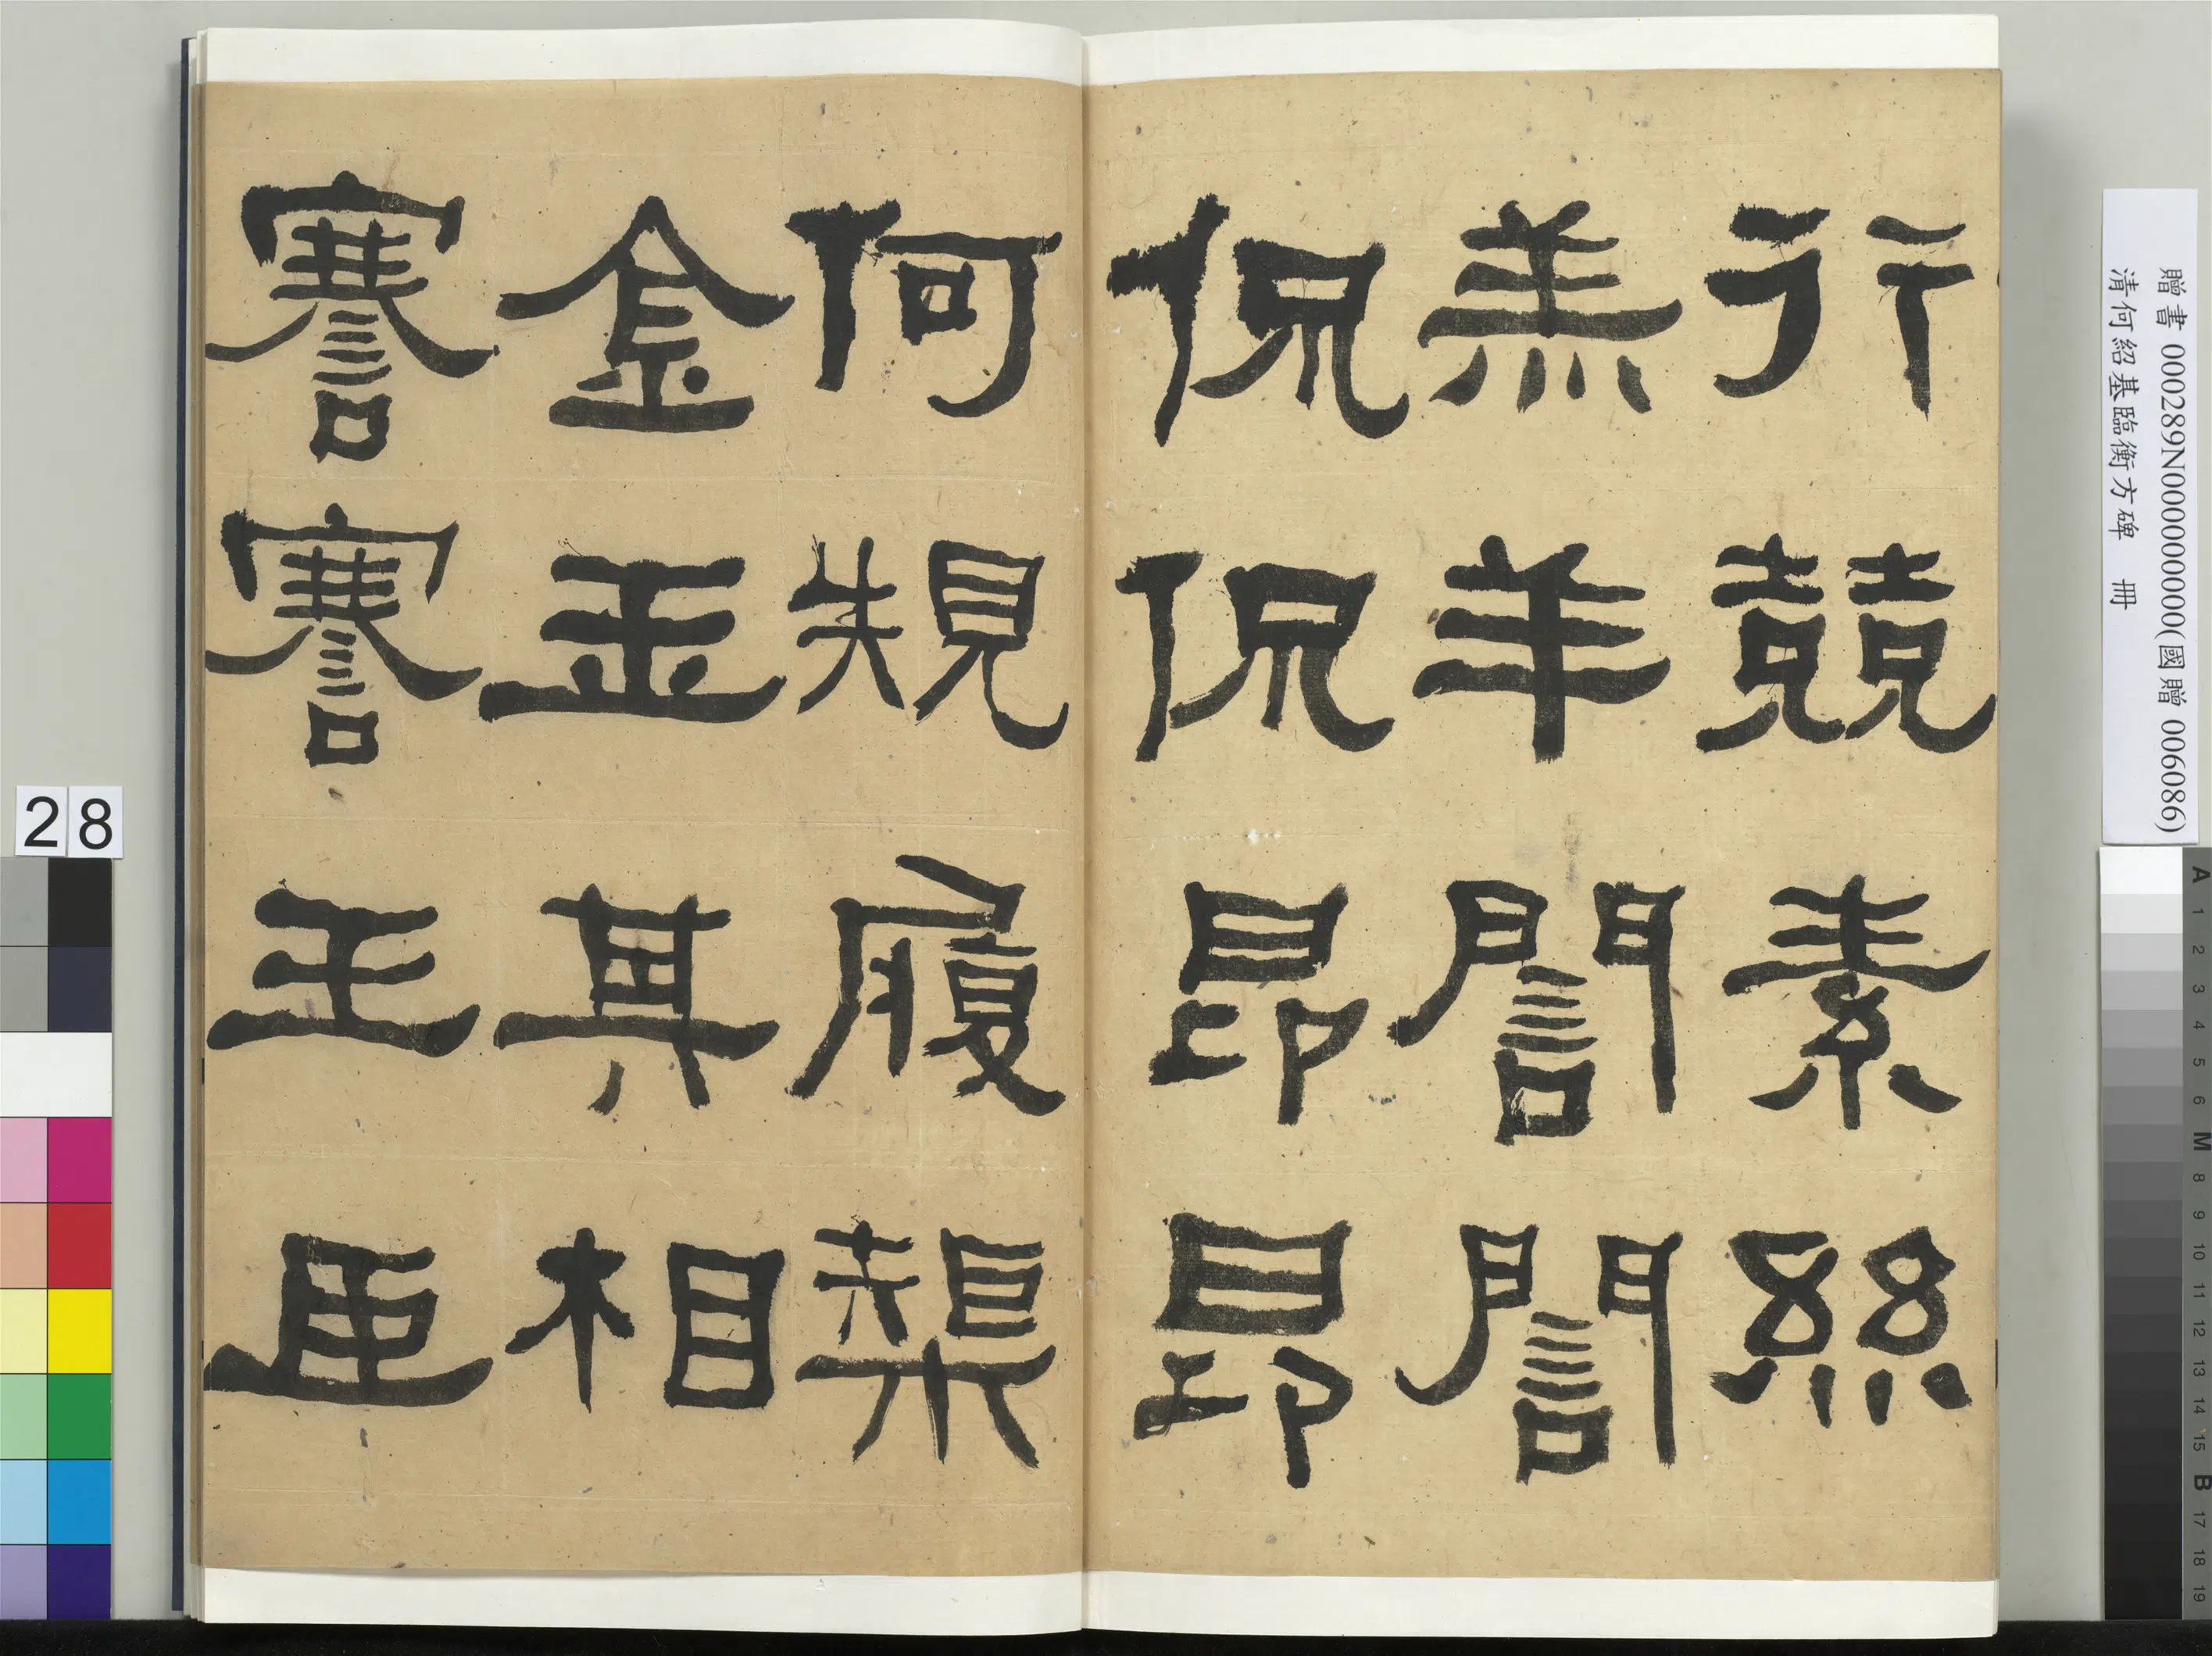 行競素絲
羔羊誾誾
侃侃昂昂
何規履榘
金玉其相
謇謇王臣
贈書 000289N000000000(國贈 006086)
清何紹基臨衡方碑 冊
28
A 1 2 3 4 5 6 M 8 9 10 11 12 13 14 15 B 17 18 19